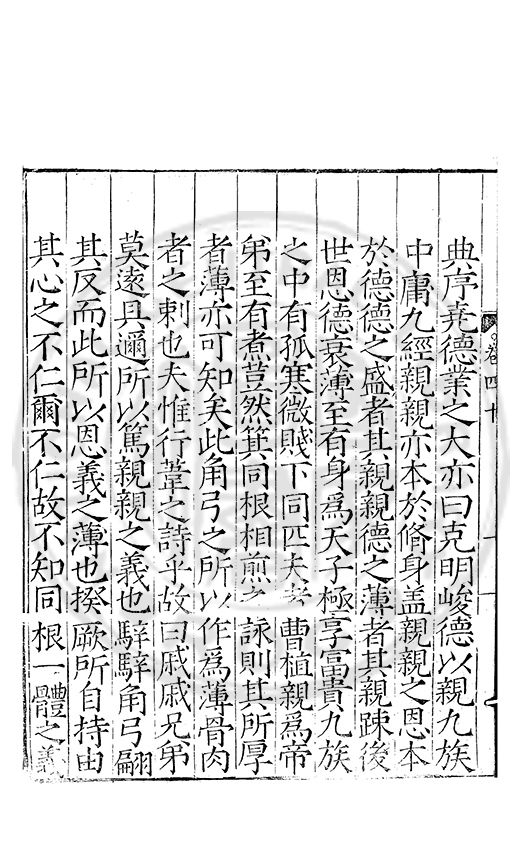 典序堯德業之大亦曰克明峻德以親九族
中庸九經親親亦本於脩身盖親親之恩本
於德德之盛者其親親德之薄者其親踈後
世恩德衰薄至有身爲天子極享富貴九族
之中有孤寒微賤下同匹夫者曹植親爲帝
弟至有煮荳然箕同根相煎之詠則其所厚
者薄亦可知矣此角弓之所以作爲薄骨肉
者之刺也夫惟行葦之詩乎故曰戚戚兄弟
莫遠具邇所以篤親親之義也騂騂角弓翩
其反而此所以恩義之薄也揆厥所自持由
其心之不仁爾不仁故不知同根一體之義
卷四十